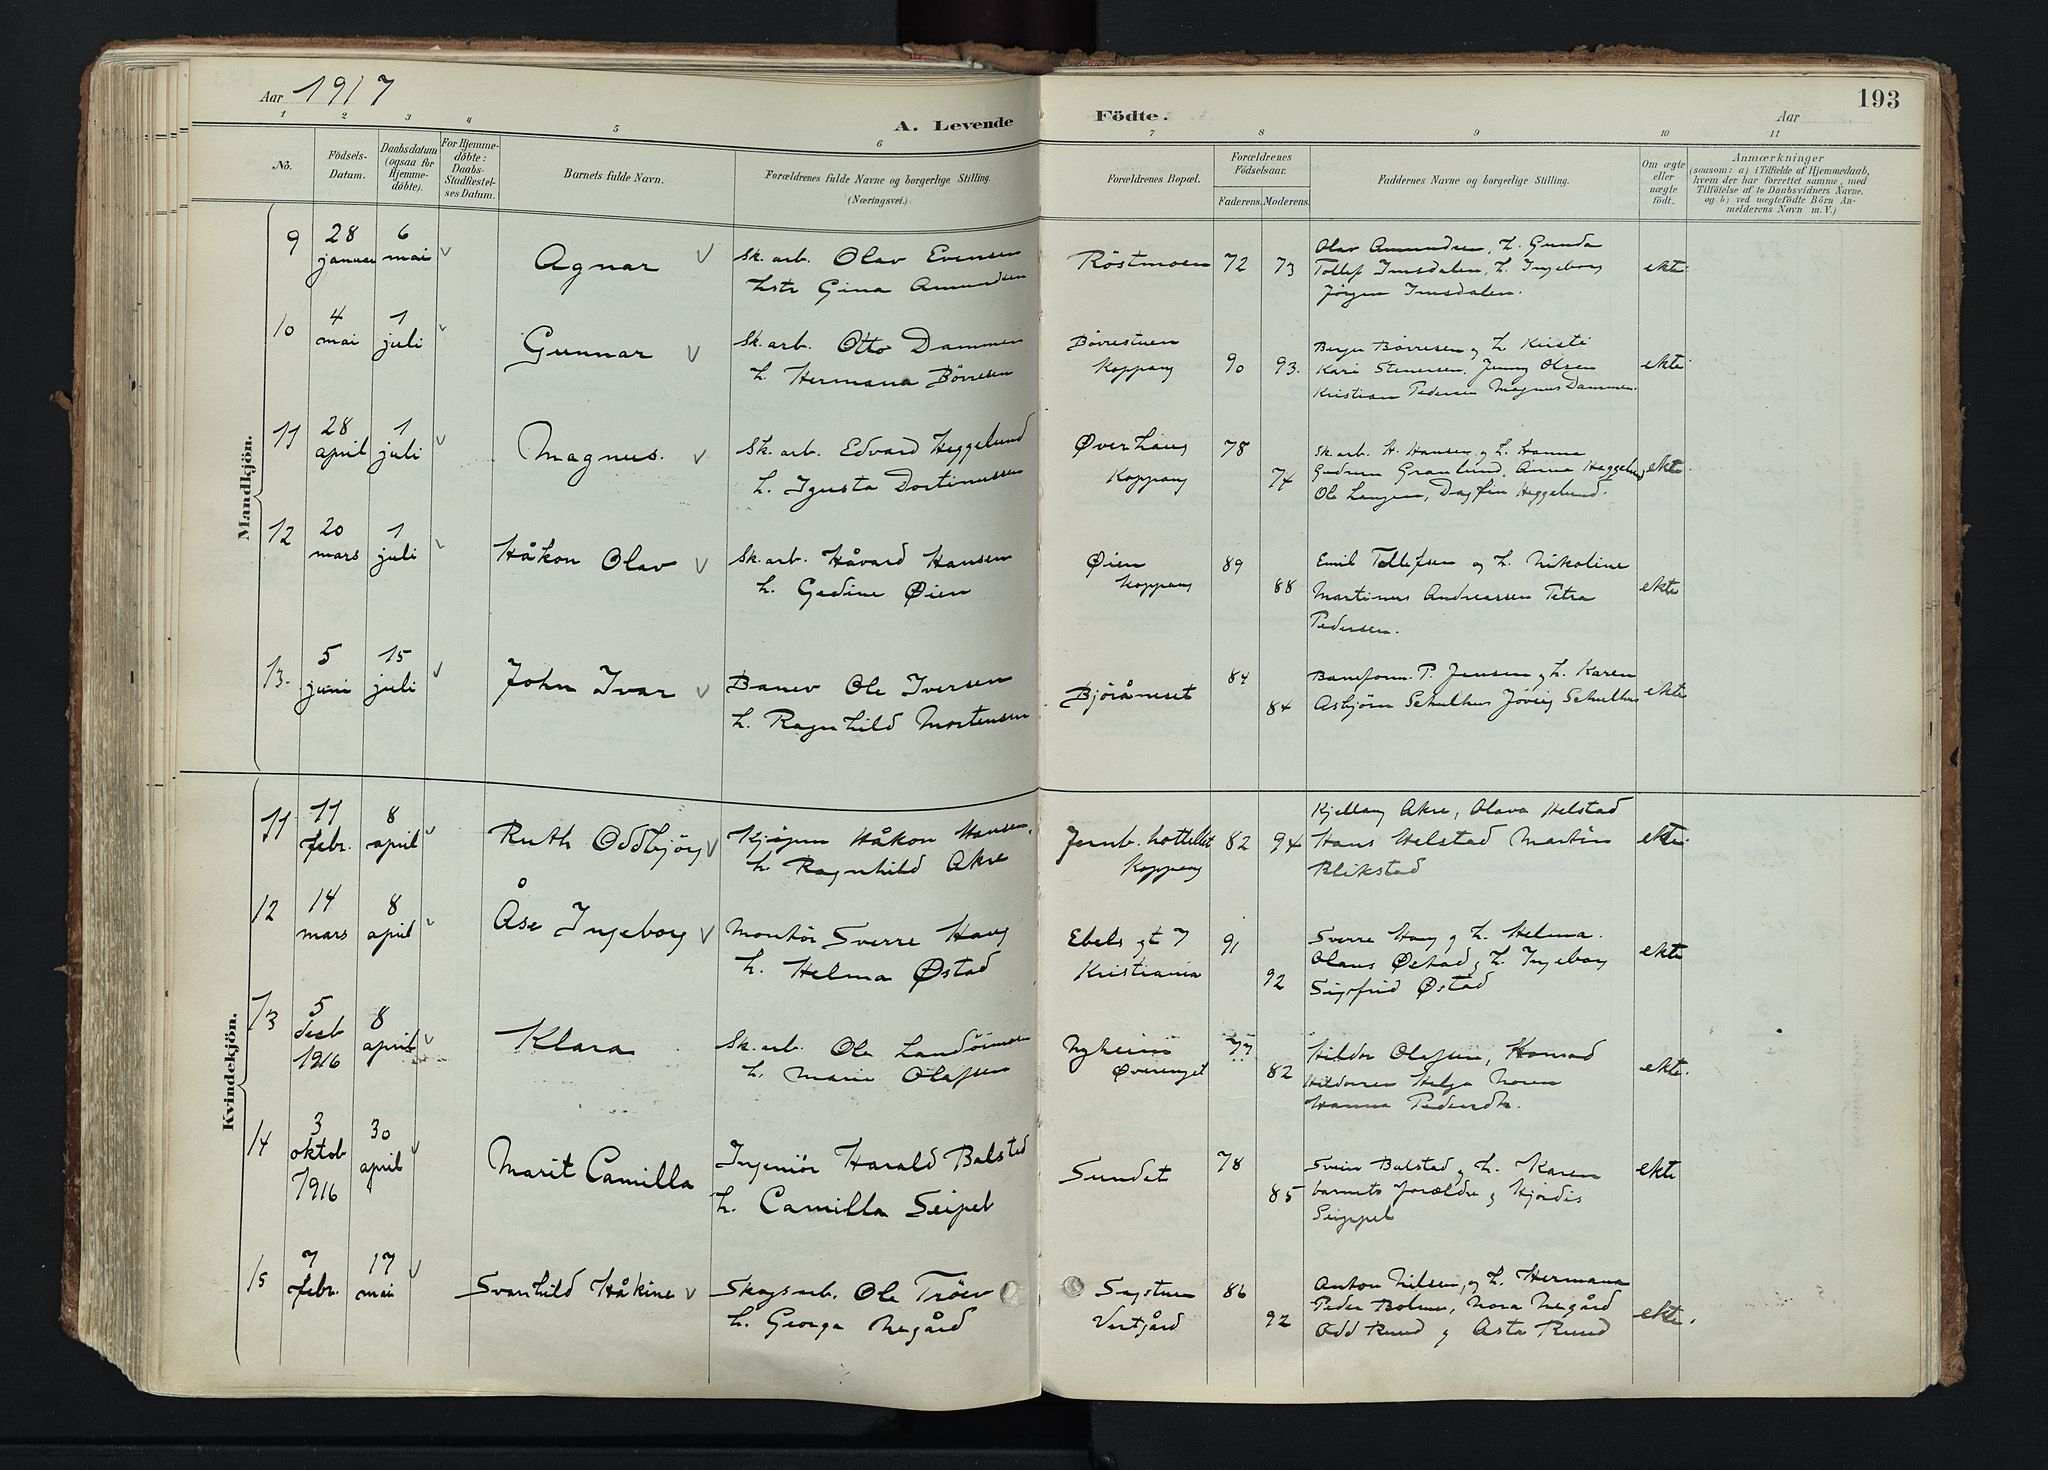 Aar 1917
A. Levende Födte.
Aar
193
1 2 3 4 5 6 7 8 9 10 11
No.
Födsels-
Datum.
Daabsdatum
(ogsaa for
Hjemme-
döbte).
For Hjemme-
döbte:
Daabs-
Stadfestel-
ses Datum.
Barnets fulde Navn.
Forældrenes fulde Navne og borgerlige Stilling.
(Næringsvei.)
Forældrenes Bopæl.
Forældrenes
Födselsaar.
Faderens. Moderens.
Faddernes Navne og borgerlige Stilling.
Om ægte
eller
uægte
födt.
Anmærkninger
(saasom: a) i Tilfælde af Hjemmedaab,
hvem der har forrettet samme, med
Tilföielse af to Daabsvidners Navne,
og b) ved uægtefödte Börn An-
melderens Navn m. V.)
Mandkjön.
9 28 januar 6 mai Agnar
Sk.arb. Olav Evensen
hstr Gina Amundsen
Röstmoen 72 73
Olav Amundsen, h. Gunda
Tollef Imsdalen, h. Ingeborg
Jörgen Imsdalen.
ekte
10 4 mai 1 juli Gunnar
Sk.arb. Otto Dammen
h. Hermana Bövresen
Bövrestuen
Koppang
90 93.
Berger Bövresen og h. Kristi
Kari Stenersen. Jenny Olsen
Kristian Pedersen Magnus Dammen.
ekte
11 28 april 1 juli Magnus.
Sk.arb. Edvard Heggelund
h. Igusta Dortinussen
Øverhaug
Koppang
78 74
Sk.arb. H. Hansen og h. Hanna
Gudrun Granlund. Anna Heggelund
Ole Lengen, Dagfin Heggelund.
ekte.
12 20 mars 1 juli Håkon Olav
Sk.arb. Håvard Hansen
h. Gedine Øien
Øien
Koppang
89 88
Emil Tollefsen og h. Nikoline
Martinus Andreassen Petra
Pedersen.
ekte
13. 5 juni 15 juli John Ivar
Banev Ole Iversen
h. Ragnhild Mortensen
Björåneset
84 84
Baneform. P. Jensen og h. Karen
Asbjörn Schulhus Jöveig Schulhus
ekte
Kvindekjön.
11 11 febr. 8 april Ruth Oddbjörg
Kjöpm Håkon Hansen.
h. Ragnhild Akre
Jernb. hottellet
Koppang
82 94
Kjellaug Akre, Olava Helstad
Hans Helstad Martin
Blikstad
ekte.
12 14 mars 8 april Åse Ingeborg
Montör Sverre Haug
h. Helma Østad
Ebels gt 7
Kristiania
91 92
Sverre Haug og h. Helma.
Olaus Østad og h. Ingeborg
Sigfrid Østad
ekte
13 5 desb 1916 8 april Klara
Sk.arb. Ole
h. Marie Olafsen
Nyheim
Øverenget
77 82
Hildor Olafsen, Konrad
Hildonen Helga Noren
Hanna Pedersdtr.
ekte.
14 3 oktob 1916 30 april Marit Camilla
Ingeniör Harald Balstad
h. Camilla Seipel
Sundet
78 85
Svein Balstad og h. Karen
barnets forældre og Hjördis
Seippel
ekte
15 7 febr. 17 mai Svanhild Håkine
Skogsarb. Ole Tröen
h. Georga Negård
Sagstuen
Vestgård
86 92
Anton Nilsen, og h. Hermana
Peder Bolme, Nora Negård
Odd Ruud og Asta Ruud
ekte.